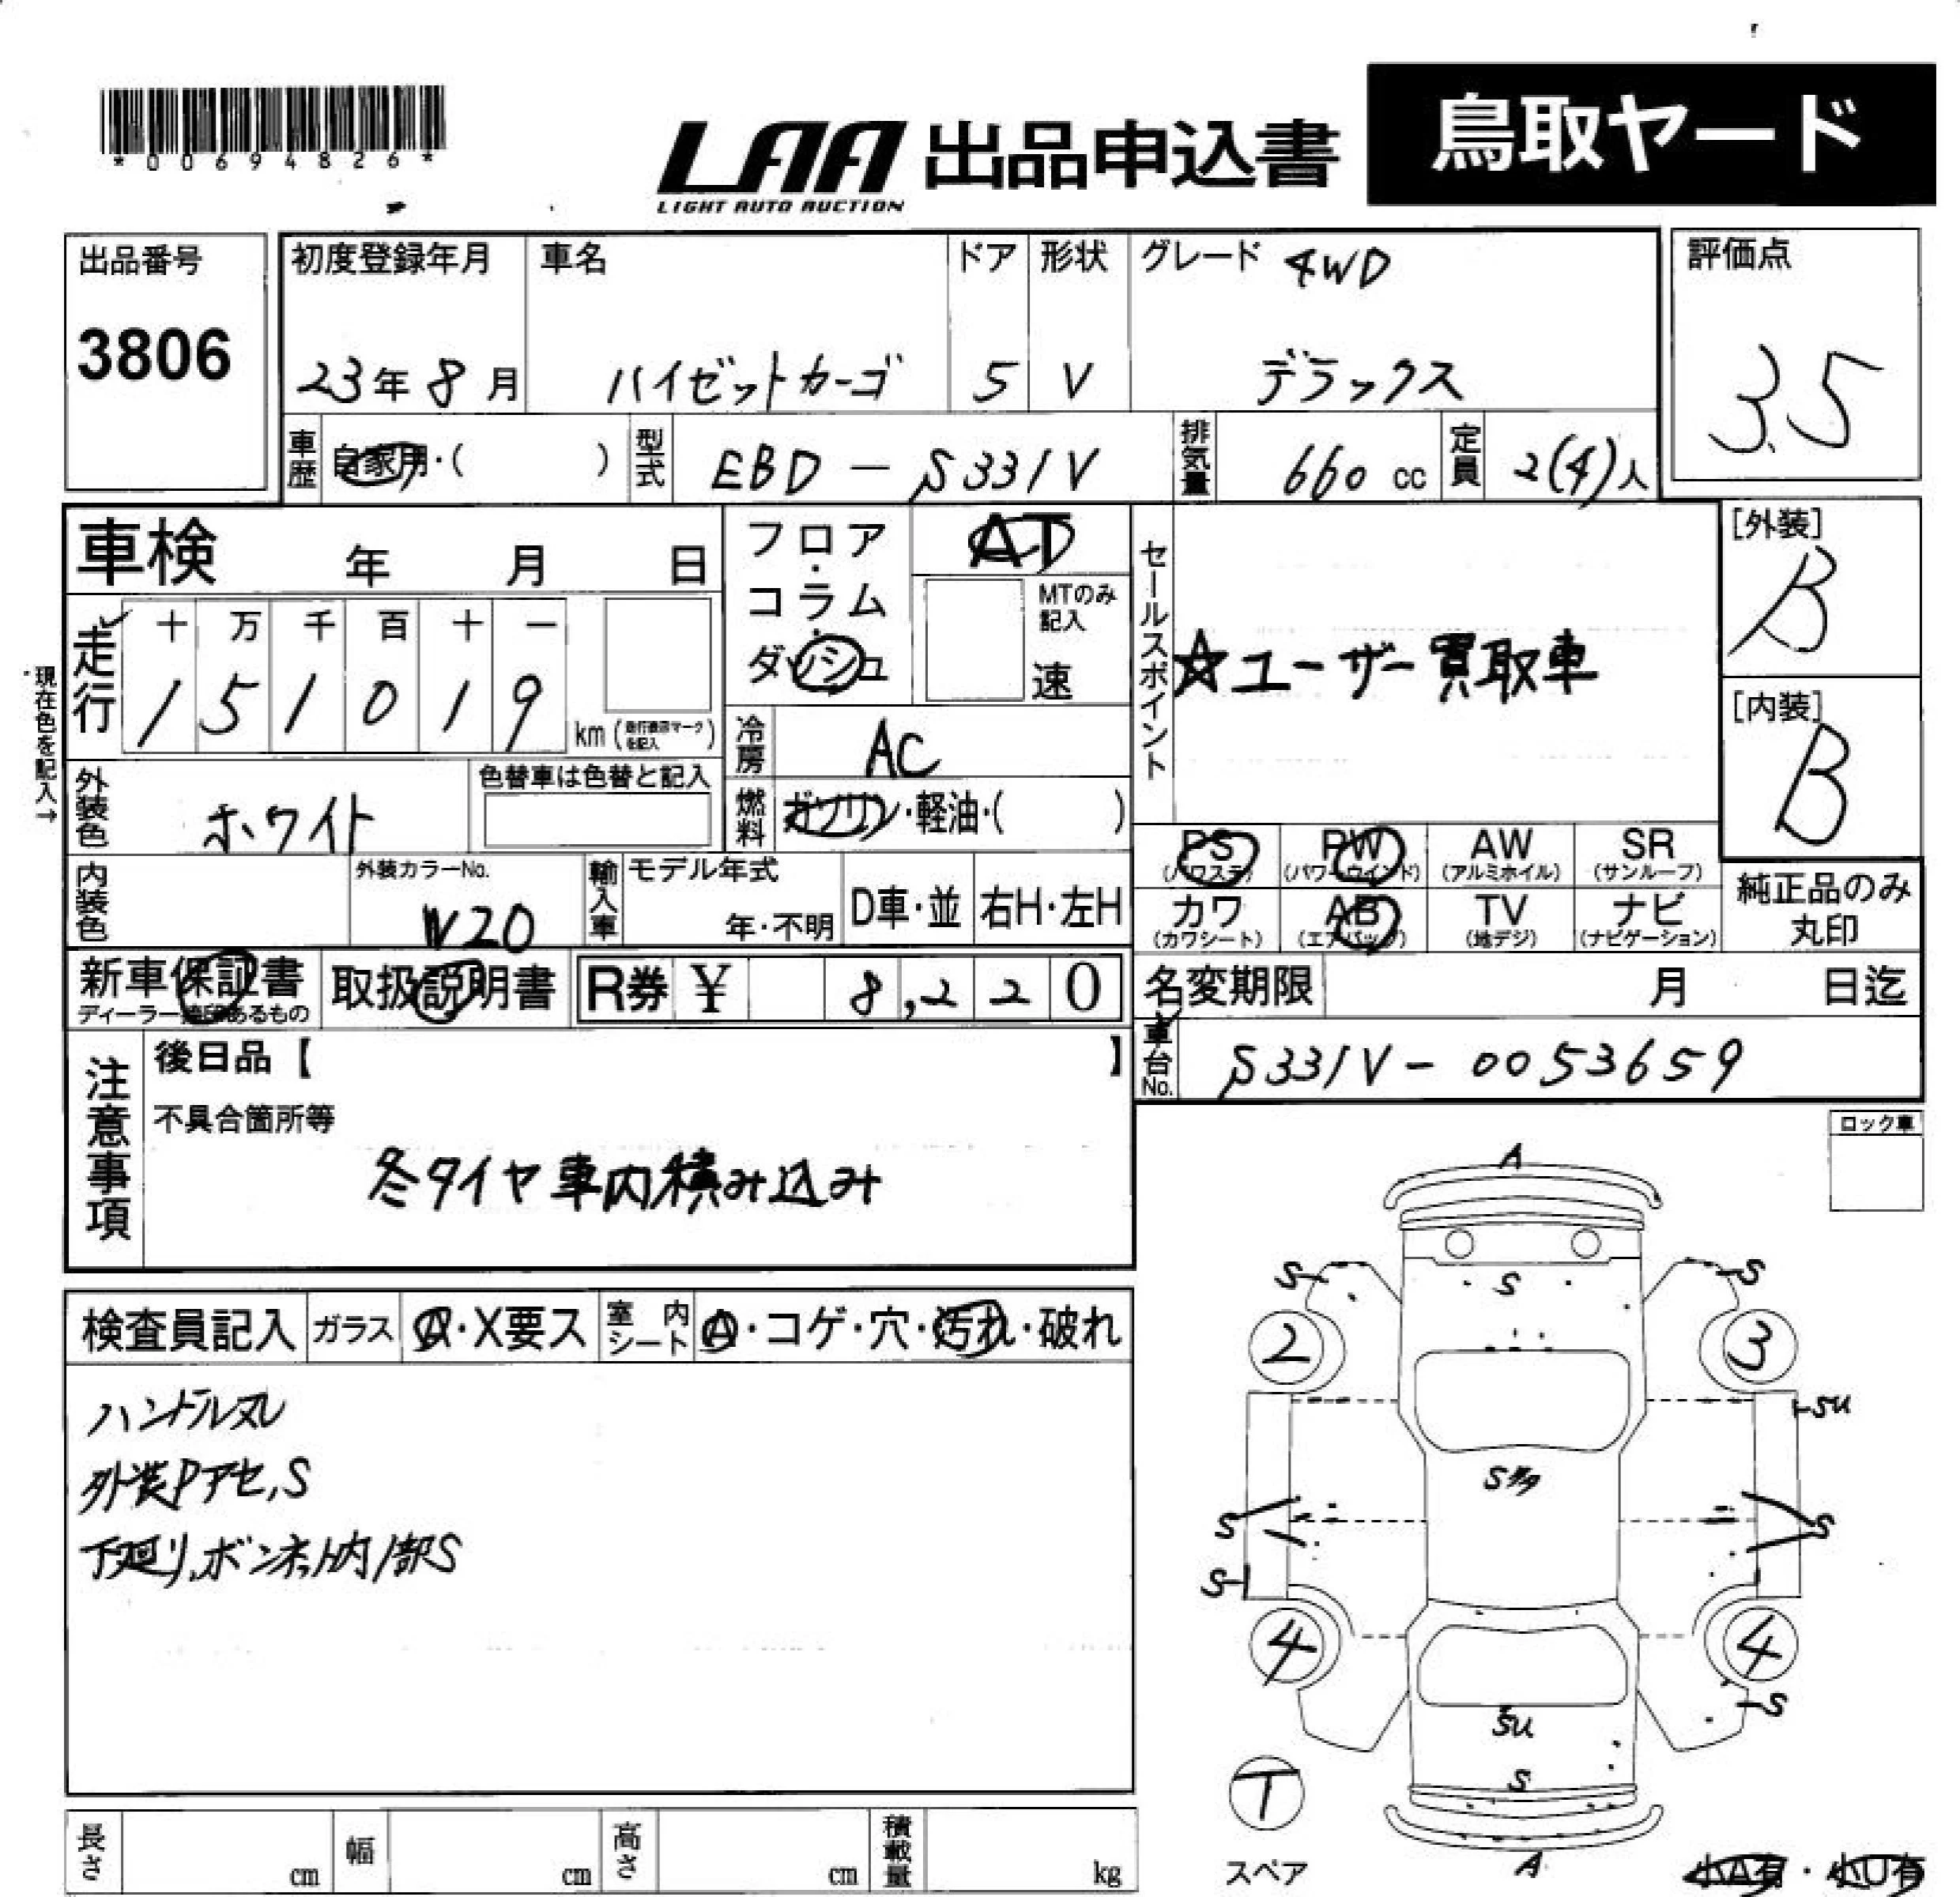 *00694826*
LAA 出品申込書 鳥取ヤード
LIGHT AUTO AUCTION
出品番号 初度登録年月 車名 ドア 形状 グレード 4WD 評価点
3806 23年 8月 ハイゼットカーゴ 5 V デラックス 3.5
車歴 自家用・( ) 型式 EBD-S331V 排気量 660 cc 定員 2(4)人
車検 年 月 日 フロア・コラム・ダッシュ AT セールスポイント [外装]
B
走行 十 万 千 百 十 一 MTのみ記入
1 5 1 0 1 9 km (走行表示マークを記入) 速 ☆ユーザー買取車 [内装]
B
現在色を記入→
冷房 AC
外装色 ホワイト 色替車は色替と記入 燃料 ガソリン・軽油・( )
PS (パワステ) PW (パワーウインド) AW (アルミホイル) SR (サンルーフ)
内装色 外装カラーNo. W20 輸入車 モデル年式 年・不明 D車・並 右H・左H
カワ (カワシート) AB (エアバッグ) TV (地デジ) ナビ (ナビゲーション) 純正品のみ丸印
新車保証書 取扱説明書 R券 ¥ 8,220 名変期限 月 日迄
ディーラー捺印あるもの
車台No. S331V-0053659
注意事項 後日品【 】
不具合箇所等
冬タイヤ車内積み込み
ロック車
検査員記入 ガラス A・X要ス 室内シート A・コゲ・穴・汚れ・破れ
ハンドルスレ
外装Pアセ,S
下廻り,ボンネット内部S
A
S S S
2 3
SU
S多
S S
S
4 4
S
SU
S
T
スペア
A
小A有・小U有
長さ cm 幅 cm 高さ cm 積載量 kg